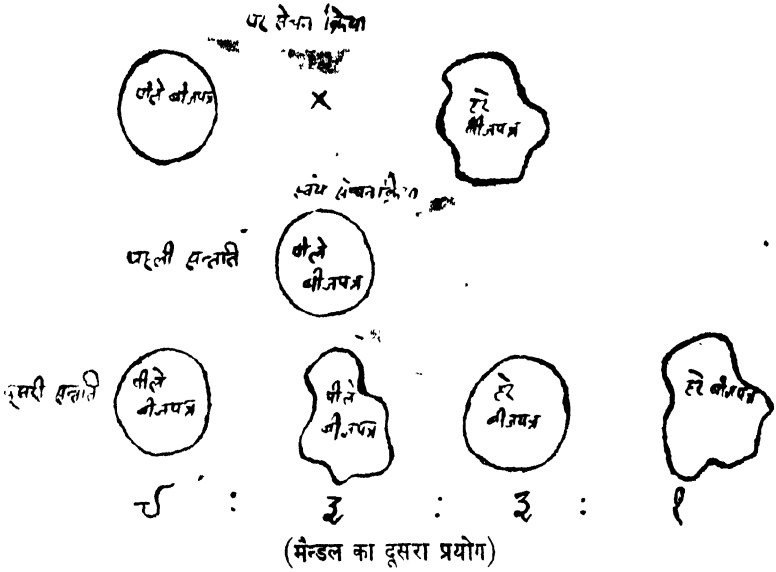 पर सेचन क्रिया
पीले बीजपत्र × हरे
बीजपत्र
स्वयं सेचन क्रिया
पहली सन्तति पीले
बीजपत्र
दूसरी सन्तति पीले
बीजपत्र पीले
बीजपत्र हरे
बीजपत्र हरे बीजपत्र
९ : ३ : ३ : १
(मैन्डल का दूसरा प्रयोग)